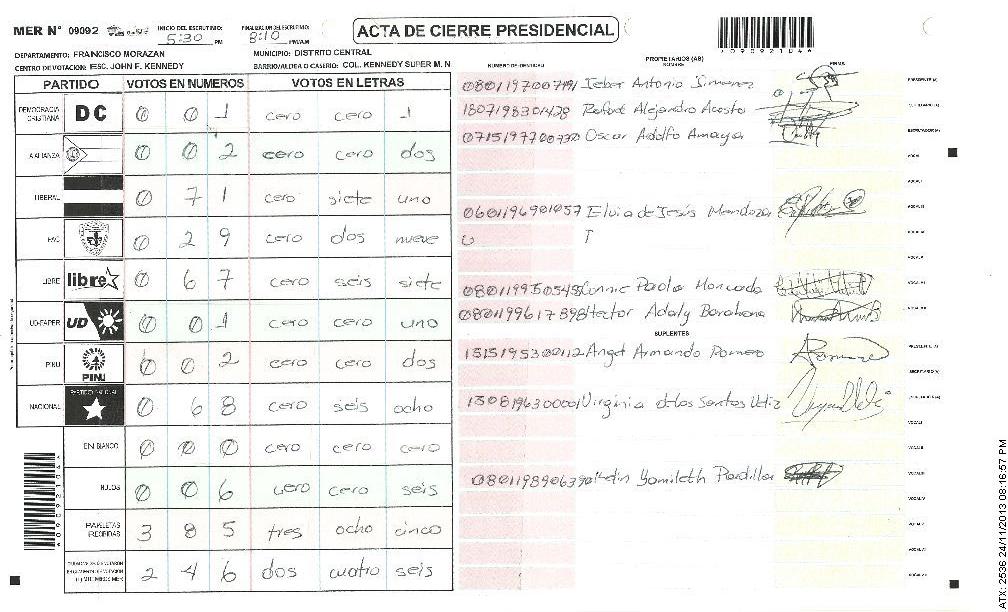 MER Nº 09092
INICIO DEL ESCRUTINIO: 5:30 PM
FINALIZACION DEL ESCRUTINIO: 8:10 PM/AM
ACTA DE CIERRE PRESIDENCIAL
DEPARTAMENTO: FRANCISCO MORAZAN
MUNICIPIO: DISTRITO CENTRAL
CENTRO DE VOTACION: ESC. JOHN F. KENNEDY
BARRIO/ALDEA O CASERIO: COL. KENNEDY SUPER M. N
PARTIDO VOTOS EN NUMEROS VOTOS EN LETRAS
DEMOCRACIA CRISTIANA DC 0 0 1 cero cero 1
ALIANZA 0 0 2 cero cero dos
LIBERAL 0 7 1 cero siete uno
PAC 0 2 9 cero dos nueve
LIBRE libre 0 6 7 cero seis siete
UD-FAPER UD 0 0 1 cero cero uno
PINU PINU 0 0 2 cero cero dos
NACIONAL PARTIDO NACIONAL 0 6 8 cero seis ocho
EN BLANCO 0 0 0 cero cero cero
NULOS 0 0 6 cero cero seis
PAPELETAS RECIBIDAS 3 8 5 tres ocho cinco
2 4 6 dos cuatro seis
PROPIETARIOS (AS)
NUMERO DE IDENTIDAD NOMBRE FIRMA
Antonio Jimenez
1807198301428 Rafael Alejandro Acosta
Oscar Adolfo Amaya
0601196901057 Elvia de Jesús Mendoza
Paola Moncada
Hector Adaly Barahona
SUPLENTES
1515195300112 Angel Armando Romero
Virginia de los Santos
Yamileth Padilla
0909921046
ATX: 2536 24/11/2013 08:16:57 PM